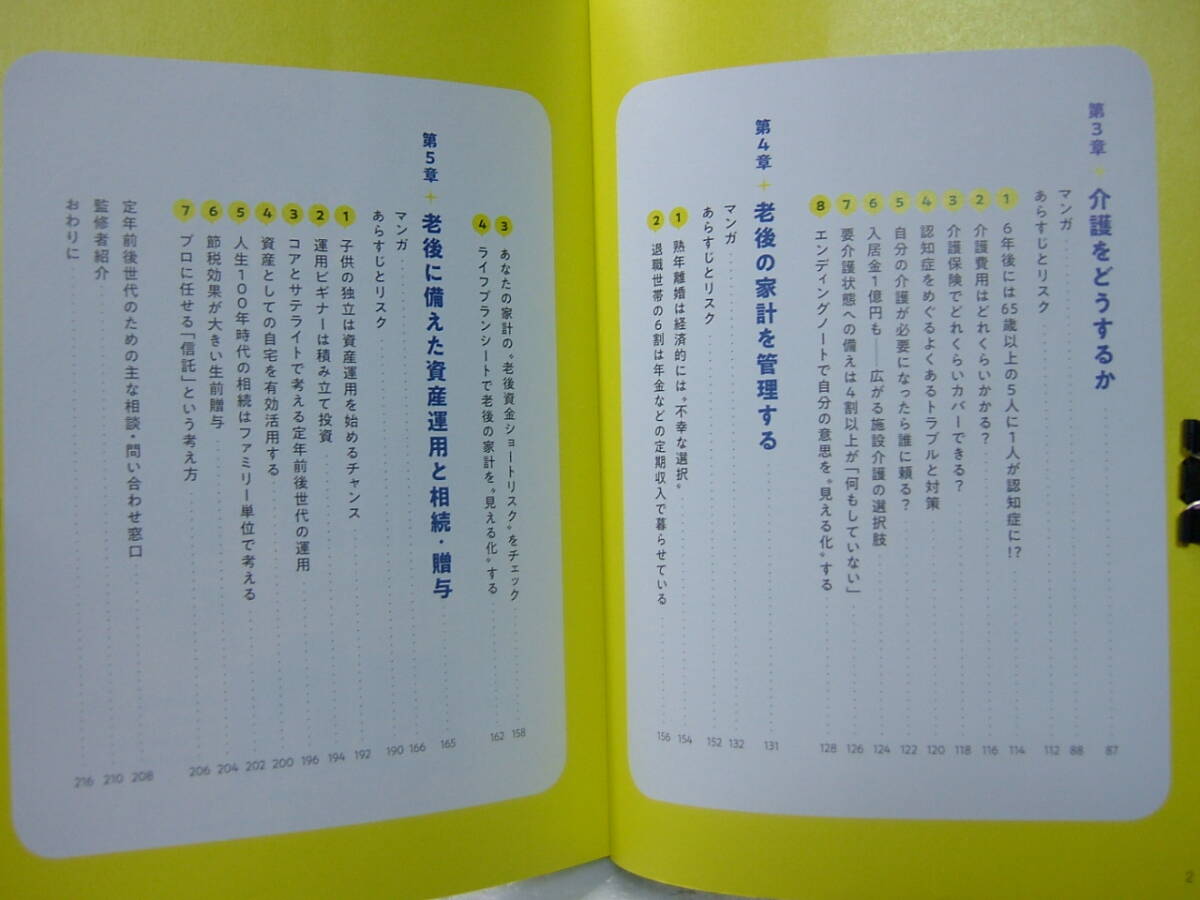 第3章+介護をどうするか 87
マンガ 88
あらすじとリスク 112
1 6年後には65歳以上の5人に1人が認知症に!? 114
2 介護費用はどれくらいかかる? 116
3 介護保険でどれくらいカバーできる? 118
4 認知症をめぐるよくあるトラブルと対策 120
5 自分の介護が必要になったら誰に頼る? 122
6 入居金1億円も――広がる施設介護の選択肢 124
7 要介護状態への備えは4割以上が「何もしていない」 126
8 エンディングノートで自分の意思を〝見える化〟する 128
第4章+老後の家計を管理する 131
マンガ 132
あらすじとリスク 152
1 熟年離婚は経済的には〝不幸な選択〟 154
2 退職世帯の6割は年金などの定期収入で暮らせている 156
2
3 あなたの家計の〝老後資金ショートリスク〟をチェック 158
4 ライフプランシートで老後の家計を〝見える化〟する 162
第5章+老後に備えた資産運用と相続・贈与 165
マンガ 166
あらすじとリスク 190
1 子供の独立は資産運用を始めるチャンス 192
2 運用ビギナーは積み立て投資 194
3 コアとサテライトで考える定年前後世代の運用 196
4 資産としての自宅を有効活用する 200
5 人生100年時代の相続はファミリー単位で考える 202
6 節税効果が大きい生前贈与 204
7 プロに任せる「信託」という考え方 206
定年前後世代のための主な相談・問い合わせ窓口 208
監修者紹介 210
おわりに 216